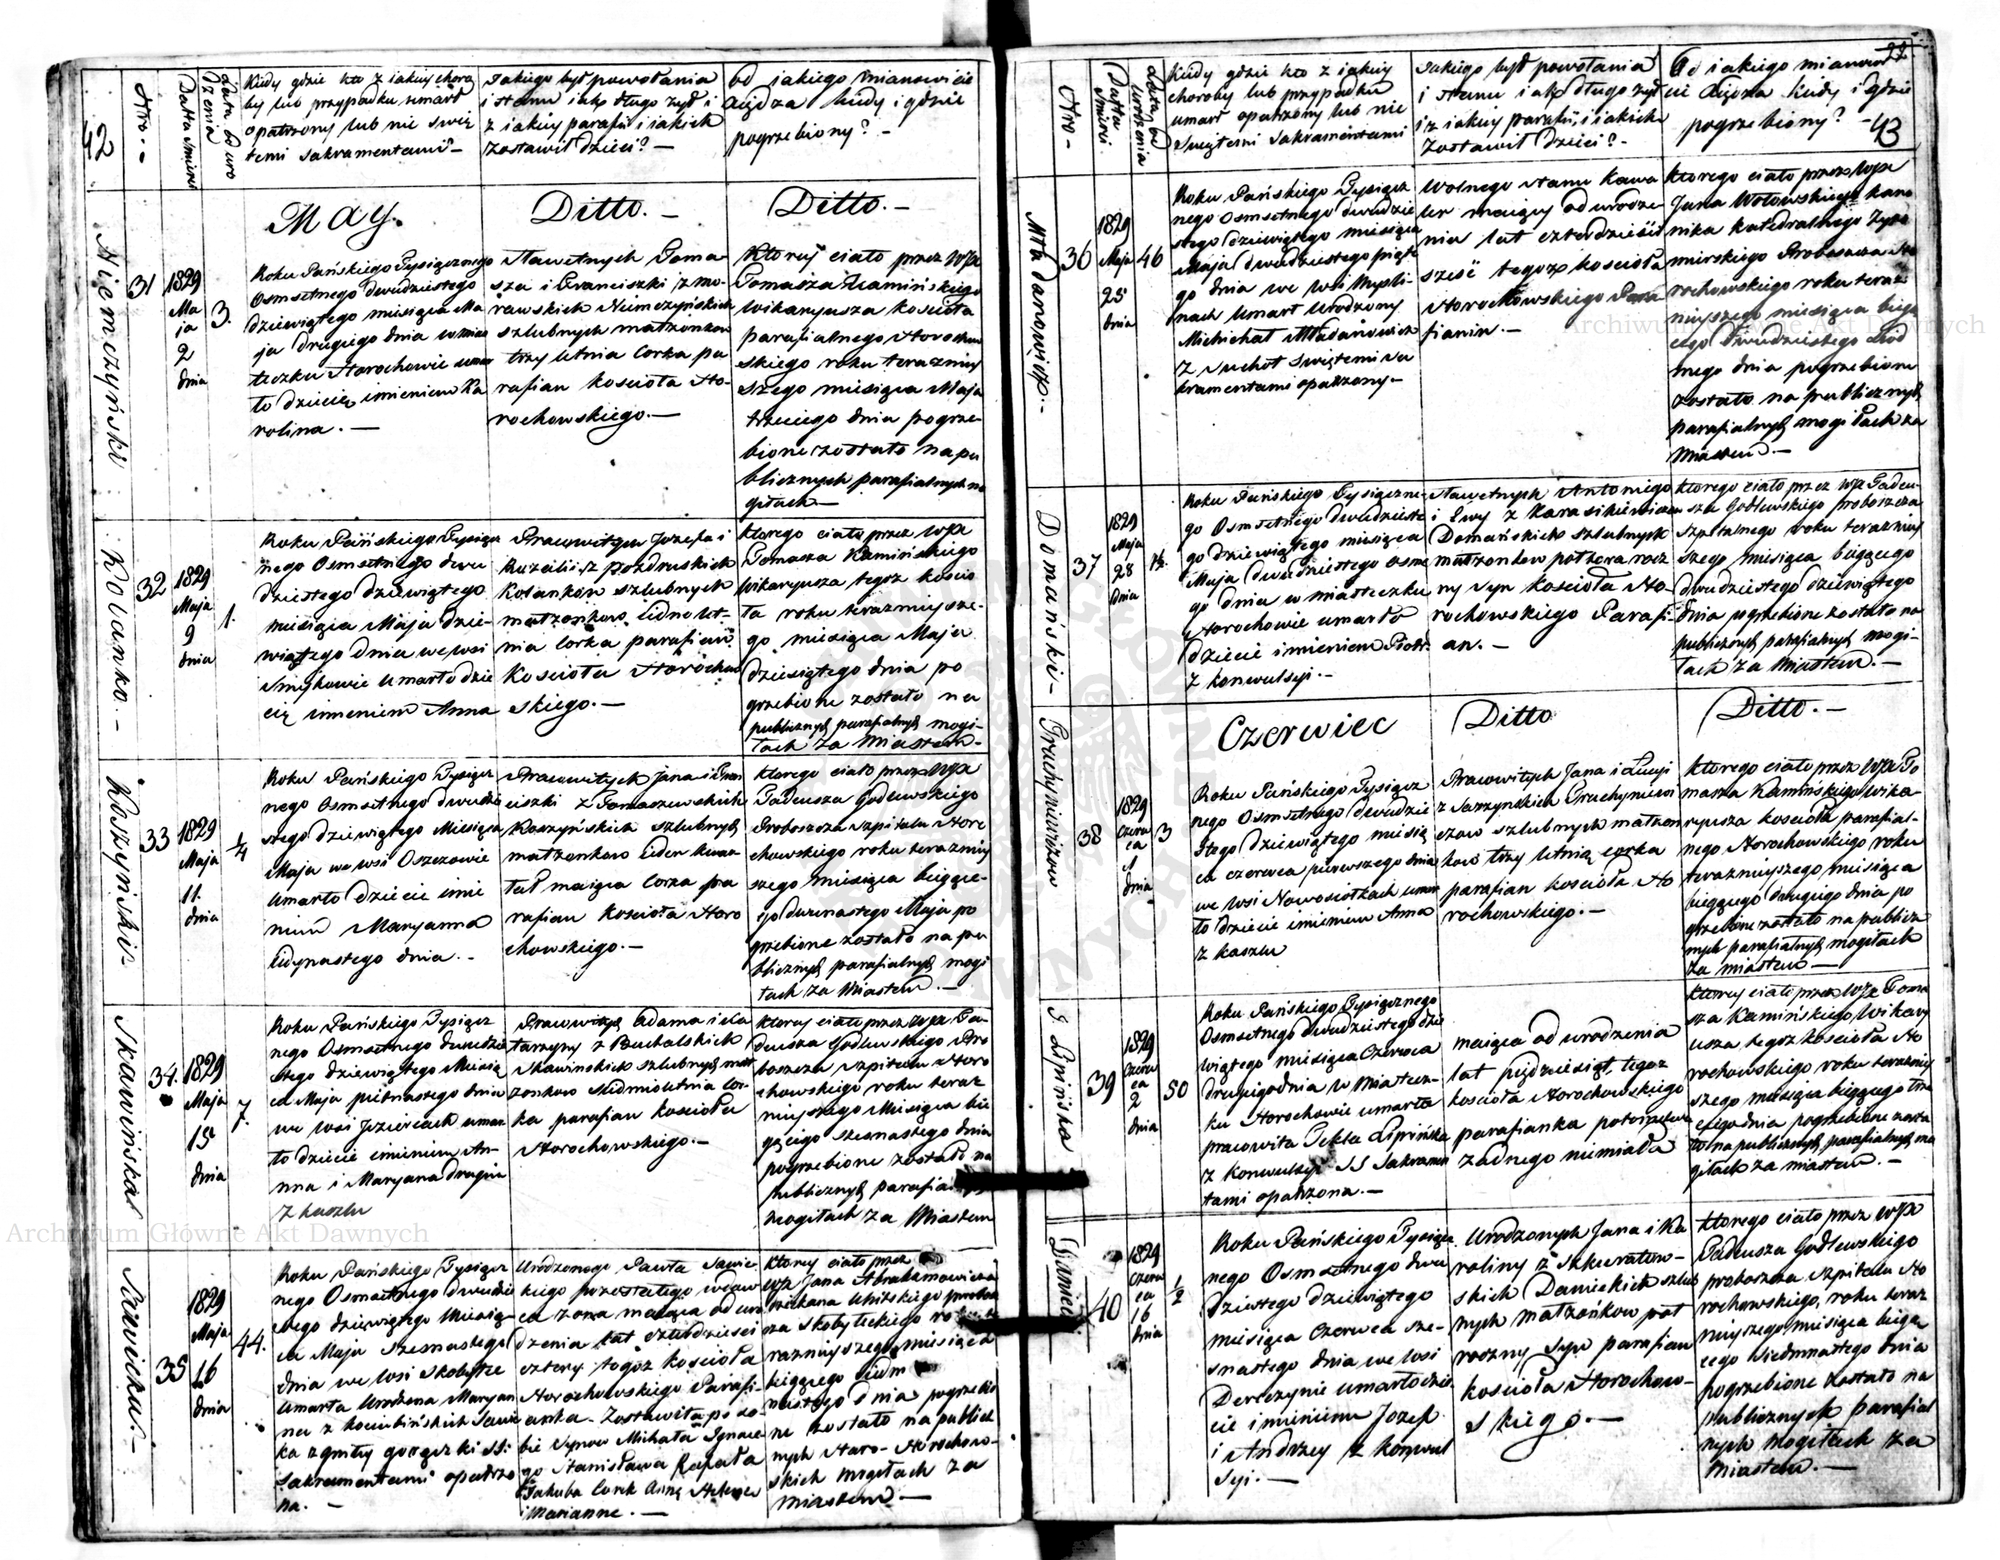 42
Nro.
Datta śmierci
Lata od urodzenia
Kiedy gdzie kto z iakiey choro
by lub przypadku umarł
opatrzony lub nie świę
temi sakramentami?
Jakiego był powołania
i stanu iak długo żył i
z iakiey parafii i iakich
zostawił dzieci? -
od jakiego mianowicie
xiędza kiedy i gdzie
pogrzebiony? -
May.
Ditto. -
Ditto. -
Niemczyński
31
1829
Ma
ja
2
dnia
3.
Roku Pańskiego Tysiącznego
Osmsetnego dwudziestego
dziewiątego miesiąca Ma
ja drugiego dnia w mias
teczku Horochowie umar
ło dziecię imieniem Ka
rolina. -
Sławetnych Toma-
sza i Franciszki z Mo-
rawskich Niemczyńskich
szlubnych małżonków
trzy letnia corka pa
rafian kościoła Ho-
rochowskiego. -
Ktorey ciało przez WJX
Tomasza Kamińskiego
wikaryusza kościoła
parafialnego Horochow
skiego roku terazniey
szego miesiąca Maja
trzeciego dnia pogrze-
bione zostało na pu
blicznych parafialnych mo
giłach -
Kolanko -
32
1829
Maja
9
dnia
1.
Roku Pańskiego Tysiącz
nego Osmsetnego dwu
dziestego dziewiątego
miesiąca Maja dzie-
wiątego dnia we wsi
Smykowie umarło dzie
cię imieniem Anna
Pracowitych Jozefa i
Rozalii z Pozdruskich
Kolankow szlubnych
małżonkow iedno let-
nia corka parafian
Kościoła Horochow
skiego. -
ktorego ciało przez WJX
Tomasza Kamińskiego
wikaryusza tegoż kościo
ła roku teraznieysze-
go miesiąca Maja
dziesiątego dnia po
grzebione zostało na
publicznych parafialnych mogi-
łach za Miastem. -
Koszyński -
33
1829
Maja
11.
dnia
1/4
Roku Pańskiego Tysiącz
nego Osmsetnego dwudzie
stego dziewiątego Miesiąca
Maja we wsi Oszczowie
umarło dziecie imie
niem Maryanna
iedynastego dnia. -
Pracowitych Jana i Fran
ciszki z Tomaszewskich
Koszyńskich szlubnych
małżonkow ieden kwar
tał maiąca corka pa
rafian kościoła Horo
chowskiego. -
ktorego ciało przez WJX
Tadeusza Godlewskiego
Proboszcza szpitalu Horo
chowskiego roku teraźniey
szego miesiąca bieżące-
go dwunastego Maja po
grzebione zostało na pu
blicznych parafialnych mogi
łach za Miastem. -
Skawińska
34.
1829
Maja
15
dnia
7.
Roku Pańskiego Tysiącz
nego Osmsetnego dwudzie
stego dziewiątego Miesią
ca Maja piętnastego dnia
we wsi Jeziercach umar
ło dziecie imieniem An-
na i Maryana dragim
z kaszlu
Pracowitych Adama i Ka
tarzyny z Buchalskich
Skawińskich szlubnych mał
żonkow siedmioletnia cor-
ka parafian kościoła
Horochowskiego. -
ktorey ciało przez WJX Ta-
deusza Godlewskiego Pro
boszcza szpitalu Horo
chowskiego roku teraz
nieyszego Miesiąca bie
żącego szesnastego dnia
pogrzebione zostało na
publicznych parafial
mogiłach za Miastem
Sawicka. -
35
1829
Maja
16
dnia
44.
Roku Pańskiego Tysiącz
nego Osmsetnego dwudzie
stego dziewiątego Miesią-
ca Maja szesnastego
dnia we wsi Skobełce
umarła Urodzona Maryan
na z Kocubińskich Sawic
ka z gniłey gorączki SS.
Sakramentami opatrzo
na. -
Urodzonego Pawła Sawic
kiego pozostałego wdow
ca żona maiąca od uro
dzenia lat czterdzieści
cztery tegoż kościoła
Horochowskiego Parafi-
anka. Zostawiła po so-
bie synow Michała Ignace
go Stanisława Rafała
Jakuba corek Annę Helenę
i Mariannę. -
ktorey ciało przez
WJX Jana Abrahamowicza
probosz
cza skobyłeckiego ro
raznieyszego miesiąca
bieżącego siedm
nastego dnia pogrzebio
ne zostało na publicz
nych Staro-Horochow-
skich mogiłach za
Miastem -
22
43
Nro -
Datta śmierci
Lata od urodzenia
Kiedy gdzie kto z iakiey
choroby lub przypadku
umarł opatrzony lub nie
świętemi sakramentami
Jakiego był powołania
i stanu i iak długo żył
i z iakiey parafii, i iakich
zostawił dzieci? -
Od iakiego mianowi
cie xiędza kiedy i gdzie
pogrzebiony? -
Mładanowicz -
36
1829
Maja
25
dnia
46
Roku Pańskiego Tysiącz
nego Osmsetnego dwudzie
stego dziewiątego miesiąca
Maja dwudziestego piąte
go dnia we wsi Myśli-
nach umarł Urodzony
Michichał Mładanowicz
z suchot świętemi sa
kramentami opatrzony -
Wolnego stanu kawa
ler maiący od urodze
nia lat czterdzieści
sześć tegoż kościoła
Horochowskiego Para
fianin. -
ktorego ciało przez WJX
Jana Wołowskiego kano
nika katedralnego Żyto
mirskiego Proboszcza Ho
rochowskiego roku teraz
nieyszego miesiąca bieżą
cego dwudziestego siod
mego dnia pogrzebione
zostało na publicznych
parafialnych mogiłach za
Miastem -
Domański -
37
1829
Maja
28
dnia
1½.
Roku Pańskiego Tysiączne-
go Osmsetnego dwudzieste
go dziewiątego miesiąca
Maja dwudziestego osme
go dnia w miasteczku
Horochowie umarło
dziecie imieniem Piotr
z konwulsyi. -
Sławetnych Antoniego
i Ewy z Karasikiewiczow
Domańskich szlubnych
małżonkow połtora rocz
ny syn kościoła Ho-
rochowskiego Parafi-
an. -
ktorego ciało przez WJX Tadeu-
sza Godlewskiego proboszcza
Szpitalnego roku terazniey
szego miesiąca bieżącego
dwudziestego dziewiątego
dnia pogrzebione zostało na
publicznych parafialnych mogi-
łach za Miastem. -
Czerwiec
Ditto
Ditto. -
Prachyniewiczow
38
1829
Czerw
ca
1
dnia
3
Roku Pańskiego Tysiącz
nego Osmsetnego dwudzie
stego dziewiątego miesią
ca czerwca pierwszego dnia
we wsi Nowosiołkach umar
ło dziecie imieniem Anna
z kaszlu
Pracowitych Jana i Łucyi
z Sarzyńskich Prachyniewi
czow szlubnych małżon
kow trzy letnią corka
parafian kościoła Ho
rochowskiego. -
ktorego ciało przez WJX To
masza Kamińskiego wika-
ryusza kościoła parafial-
nego Horochowskiego roku
teraznieyszego miesiąca
bieżącego drugiego dnia po
grzebione zostało na publicz
nych parafialnych mogiłach
za miastem -
J. Lipińska
39
1829
Czerw
ca
2
dnia
50
Roku Pańskiego Tysiącznego
Osmsetnego dwudziestego dzie
wiątego miesiąca Czerwca
drugiego dnia w Miastecz-
ku Horochowie umarła
pracowita Tekla Lipińska
z konwulsyi SS Sakramen
tami opatrzona. -
maiąca od urodzenia
lat pięćdziesiąt, tegoż
kościoła Horochowskiego
parafianka potomstwa
żadnego niemiała
ktorey ciało przez WJX Toma
sza Kamińskiego Wikary
usza tegoż kościoła Ho
rochowskiego roku terazniey
szego miesiąca bieżącego trze
ciego dnia pogrzebione zosta
ło na publicznych parafialnych mo
giłach za miastem. -
Daniel
40
1829
Czerw
ca
16
dnia
1/2
Roku Pańskiego Tysiącz
nego Osmsetnego dwu
dziestego dziewiątego
miesiąca Czerwca sze-
snastego dnia we wsi
Derczynie umarło dzie
cie imieniem Jozef
i Andrzey z konwul
syi. -
Urodzonych Jana i Ka
roliny z Skuratow-
skich Danieckich szlub
nych małżonkow poł
roczny syn parafian
kościoła Horochow-
skiego. -
ktorego ciało przez WJX
Tadeusza Godlewskiego
proboszcza szpitalu Ho
rochowskiego, roku teraz
nieyszego miesiąca bieżą
cego siedmnastego dnia
pogrzebione zostało na
publicznych parafial
nych mogiłach za
Miastem. -
Archiwum Główne Akt Dawnych
Archiwum Główne Akt Dawnych